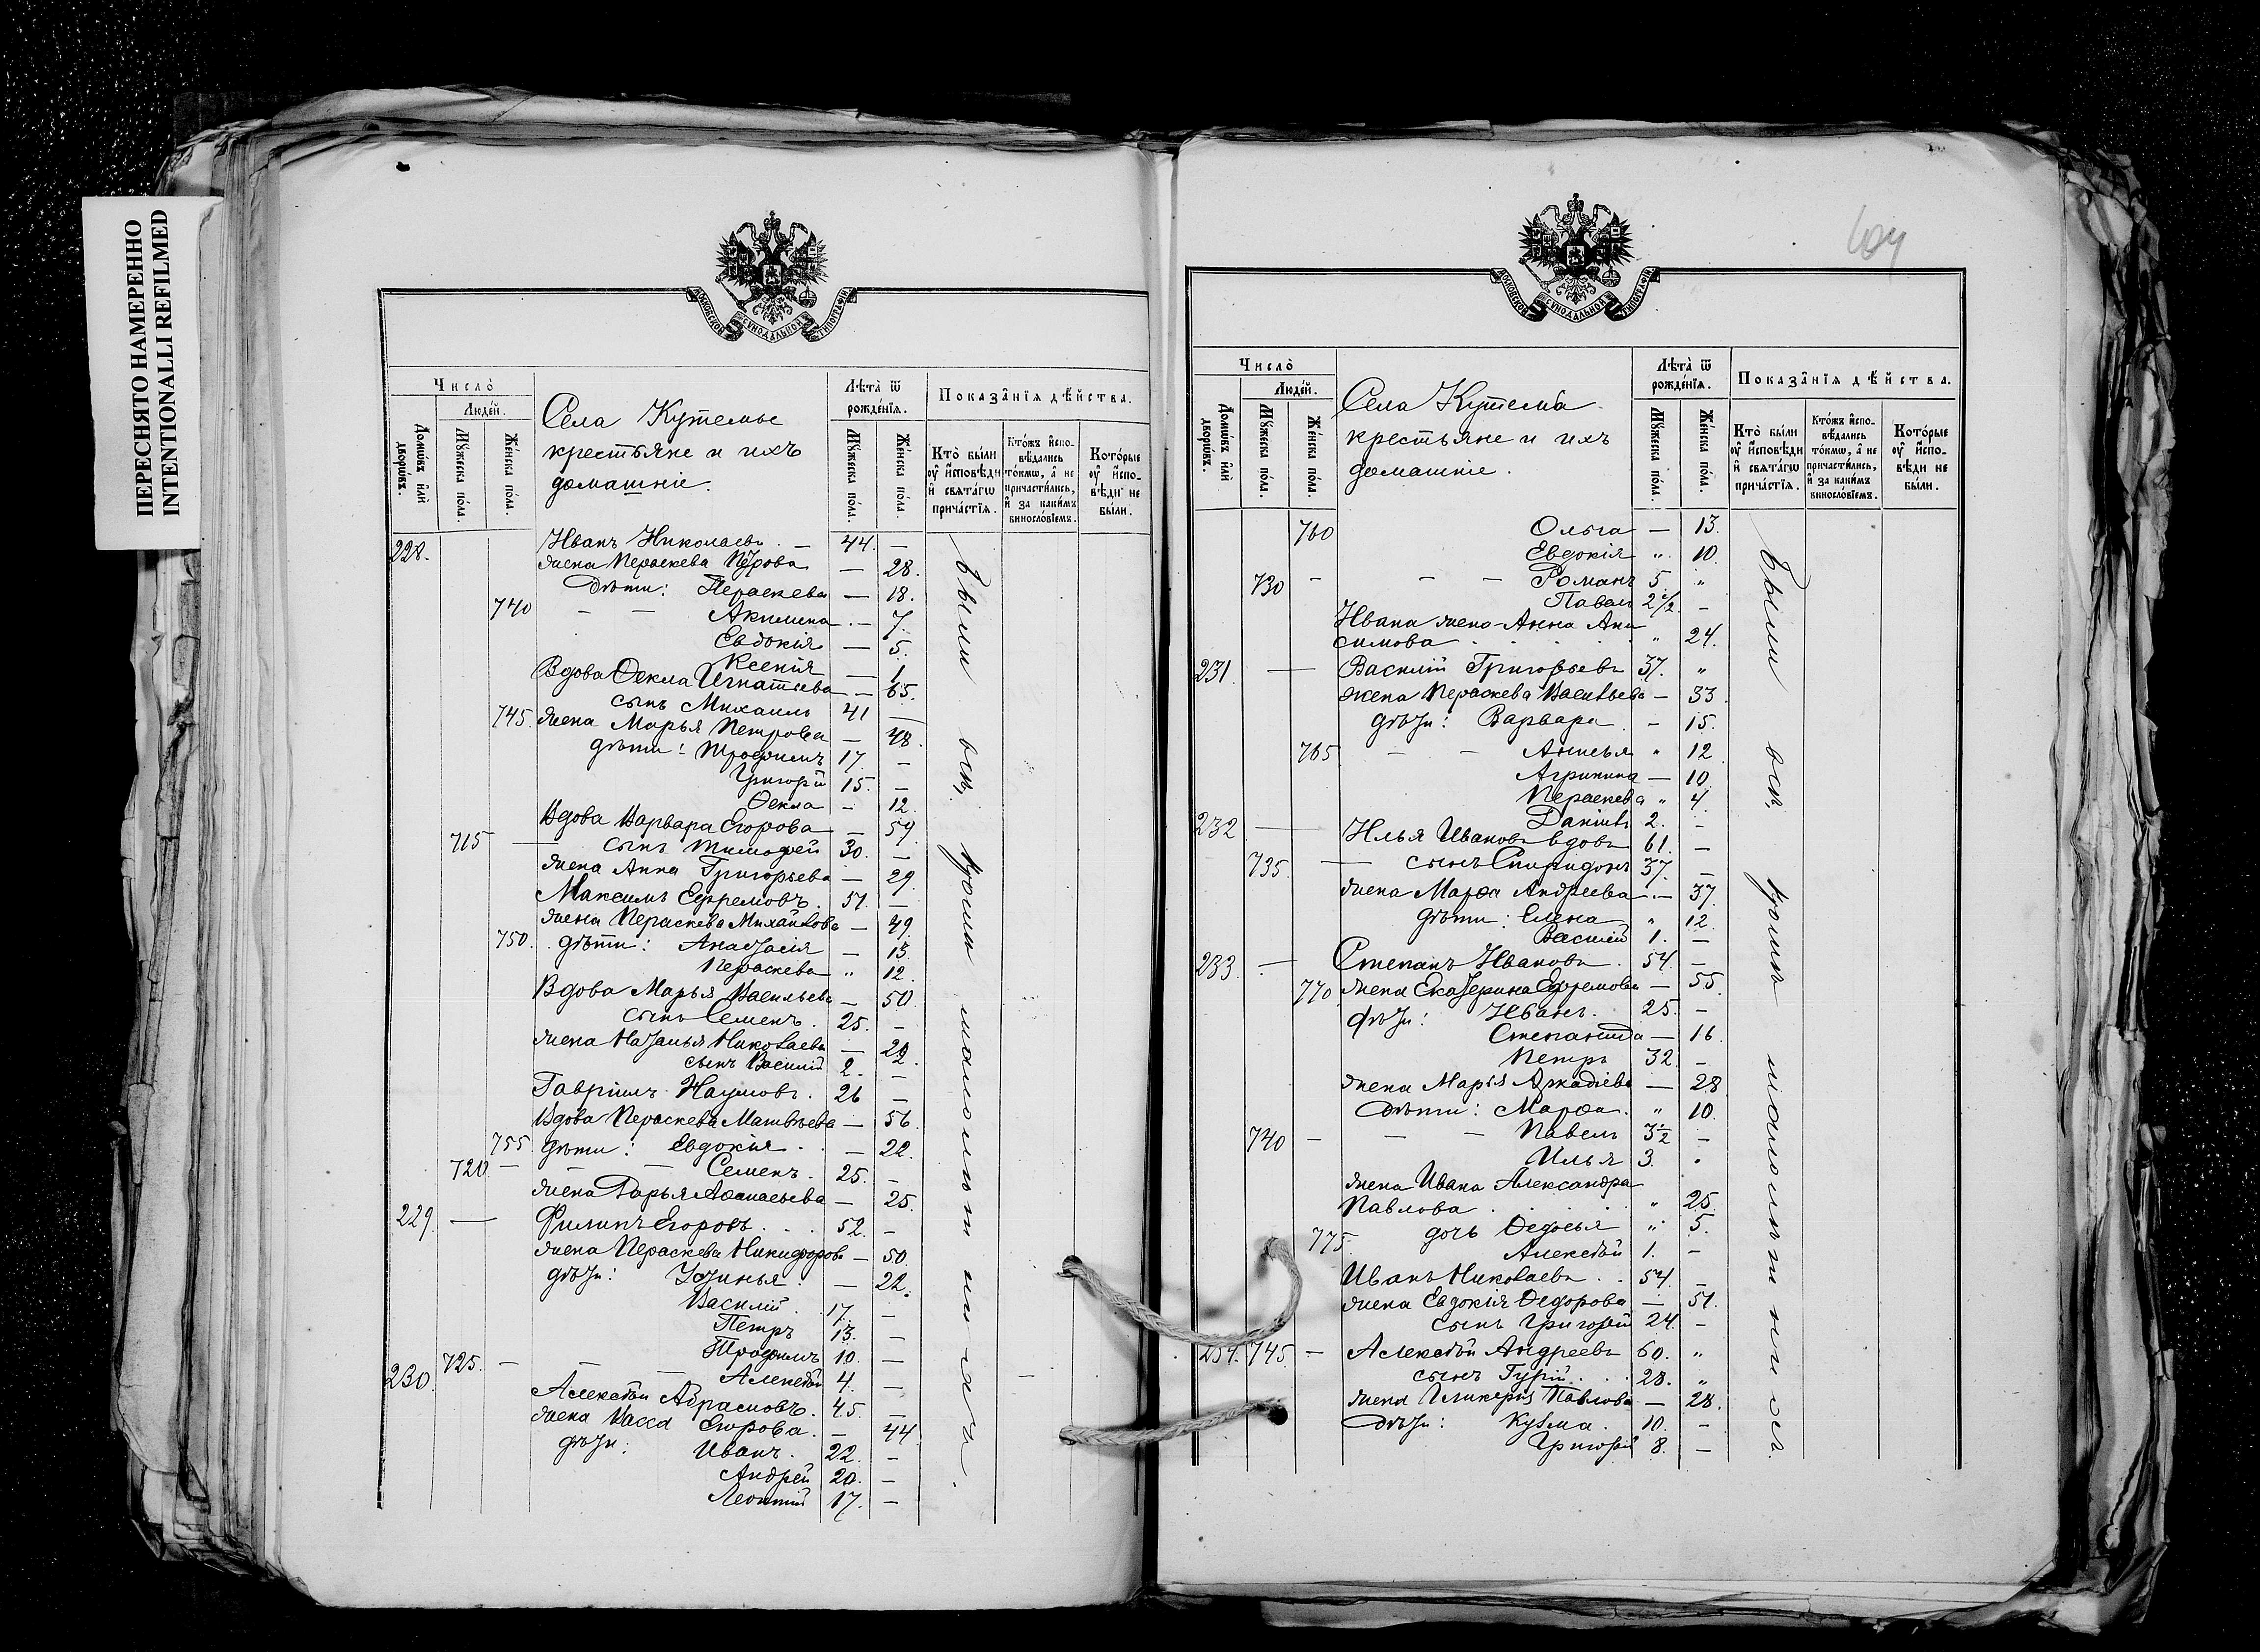 ПЕРЕСНЯТО НАМЕРЕННО
INTENTIONALLI REFILMED
МОСКОВСКОЙ СѴНОДАЛЬНОЙ ТИПОГРАФІИ
Число̀
Люде́й.
Домѡ́въ и҆лѝ дворѡ́въ.
Мꙋ́жеска по́ла.
Же́нска по́ла.
Села Кутемы
крестьяне и ихъ
домашніе.
Лѣта̀ ѿ рожде́нїѧ.
Мꙋ́жеска по́ла.
Же́нска по́ла.
Показа̑нїѧ дѣ́йства.
Кто̀ бы́ли оу҆ и҆сповѣ́ди и҆ свѧта́гѡ прича́стїѧ.
Кто́жъ и҆сповѣ́дались то́кмѡ, а҆ не причасти́лись, и҆ за каки́мъ виносло́вїемъ.
Кото́рые оу҆ и҆сповѣ́ди не бы́ли.
228. Иванъ Николаевъ. — 44. —
жена Параскева Петрова — 28.
дѣти: Параскева — 18.
740 — — Акилина — 7.
Евдокія — 5.
Ксенія — 1
Вдова Ѳекла Игнатьева — 65.
сынъ Михаилъ 41 —
745. жена Марья Петрова — 48.
дѣти: Трофимъ 17. —
Григорій 15. —
Ѳекла — 12.
Вдова Варвара Егорова — 59.
715 — сынъ Тимофей 30. —
жена Анна Григорьева — 29.
Максимъ Ефремовъ. 51. —
жена Параскева Михайлова — 49.
750. дѣти: Анастасія — 15.
Параскева „ 12.
Вдова Марья Васильева — 50.
сынъ Семенъ. 25. —
жена Наталья Николаева — 22.
сынъ Василій 2. —
Гавріилъ Наумовъ. 26 —
Вдова Параскева Матвѣева — 56.
755. дѣти: Евдокія — 22.
720 — — Семенъ. 25. —
жена Дарья Аѳанасьева — 25.
229. — Филипъ Егоровъ . . . 52. —
жена Параскева Никифорова — 50.
дѣти: Устинья. — 22.
Василій. 17. —
Петръ 13. —
Трофимъ 10. —
725. — — Алексѣй 4. —
230. Алексѣй Абрамовъ. 45. —
жена Васса Егорова. — 44.
дѣти: Иванъ. 22. —
Андрей 20. —
Леонтій 17. —
Были вси, кромѣ малолѣтнихъ.
МОСКОВСКОЙ СѴНОДАЛЬНОЙ ТИПОГРАФІИ
Число̀
Люде́й.
Домѡ́въ и҆лѝ дворѡ́въ.
Мꙋ́жеска по́ла.
Же́нска по́ла.
Села Кутемы
крестьяне и ихъ
домашніе.
Лѣта̀ ѿ рожде́нїѧ.
Мꙋ́жеска по́ла.
Же́нска по́ла.
Показа̑нїѧ дѣ́йства.
Кто̀ бы́ли оу҆ и҆сповѣ́ди и҆ свѧта́гѡ прича́стїѧ.
Кто́жъ и҆сповѣ́дались то́кмѡ, а҆ не причасти́лись, и҆ за каки́мъ виносло́вїемъ.
Кото́рые оу҆ и҆сповѣ́ди не бы́ли.
760 Ольга — 13.
Евдокія „ 10.
730 — — — Романъ 5 „
Павелъ 2½ —
Ивана жена Анна Ани-
симова „ 24.
231. — Василій Григорьевъ 37. „
жена Параскева Васильева — 33.
дѣти: Варвара — 15.
765 — — Анисья „ 12
Агрипина — 10.
Параскева „ 4.
Даніилъ 2. —
232 — Илья Ивановъ вдовъ 61. —
735. — сынъ Спиридонъ 37. —
жена Марѳа Андреева — 37.
дѣти: Елена „ 12.
Василій 1. —
233. — Степанъ Ивановъ. 54. —
770 жена Екатерина Ефремова — 55.
дѣти: Иванъ. 25. —
Степанида — 16.
Петръ 32. —
жена Марія Аркадіева — 28.
дѣти: Марѳа. „ 10.
740 — — — Павелъ 3½ —
Илья 3. „
жена Ивана Александра
Павлова „ 25.
775. дочь Ѳедосья „ 5.
Алексѣй 1. —
Иванъ Николаевъ . . 54. —
жена Евдокія Ѳедорова — 51.
сынъ Григорій 24. —
234. 745. — Алексѣй Андреевъ 60. „
сынъ Гурій. 28. „
жена Гликерія Павлова — 28.
дѣти: Кузма. 10. —
Григорій 8. —
Были вси, кромѣ малолѣтнихъ.